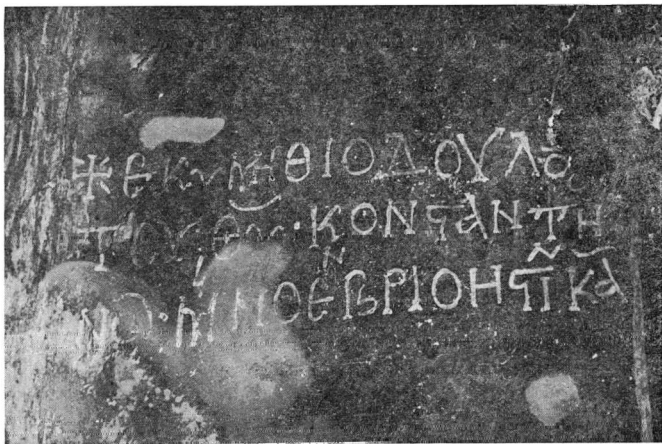 ✠ ΕΚΥΜΗΘΙ Ο ΔΟΥΛΟ
ΤΟΥ ΘΥ · ΚΟΝϚΑΝΤΗ
ΝΟΕΒΡΙΟ ΗϚ ΤΙΝ ΚΑ